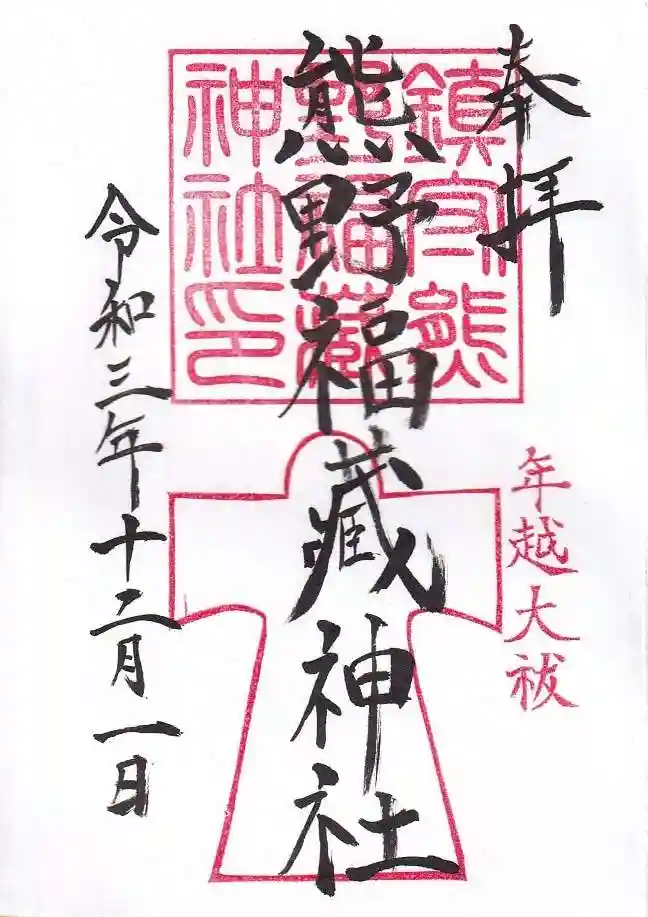 奉拝
年越大祓
熊野福藏神社
鎮守熊
野福藏
神社印
令和三年十二月一日